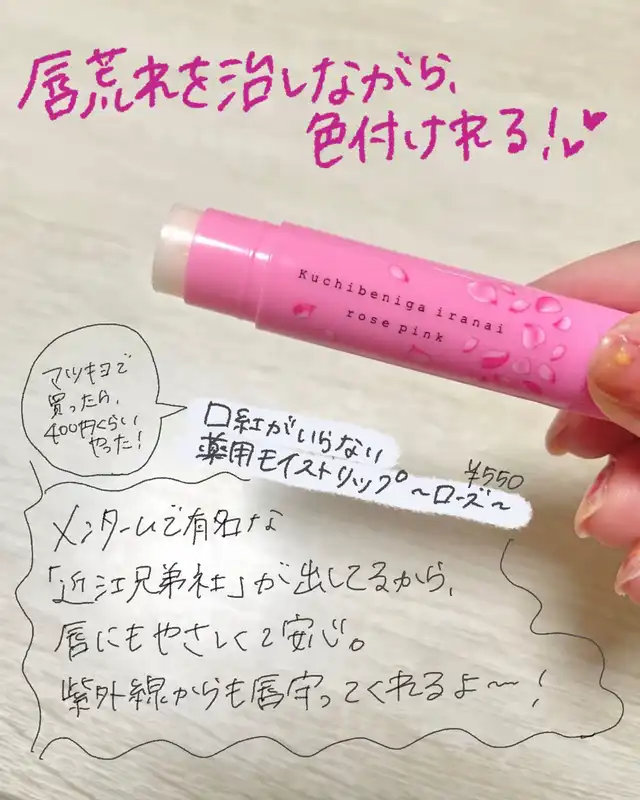 唇荒れを治しながら、
色付けれる!
Kuchibeniga iranai
rose pink
マツキヨで
買ったら、
400円くらい
やった!
口紅がいらない
薬用モイストリップ~ローズ~
¥550
メンタームで有名な
「近江兄弟社」が出してるから、
唇にもやさしくて安心。
紫外線からも唇守ってくれるよ〜!